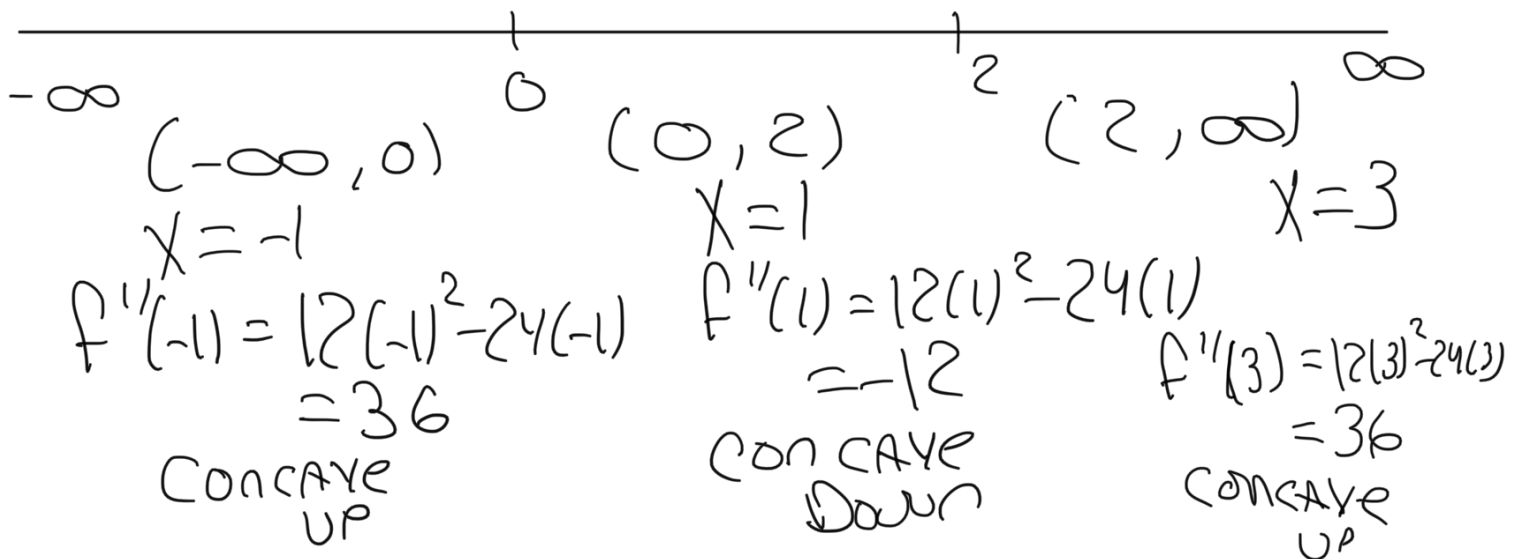 -∞ 0 2 ∞
(-∞, 0)
x = -1
f''(-1) = 12(-1)²-24(-1)
= 36
CONCAVE
UP
(0, 2)
x = 1
f''(1) = 12(1)²-24(1)
= -12
CONCAVE
DOWN
(2, ∞)
x = 3
f''(3) = 12(3)²-24(3)
= 36
CONCAVE
UP